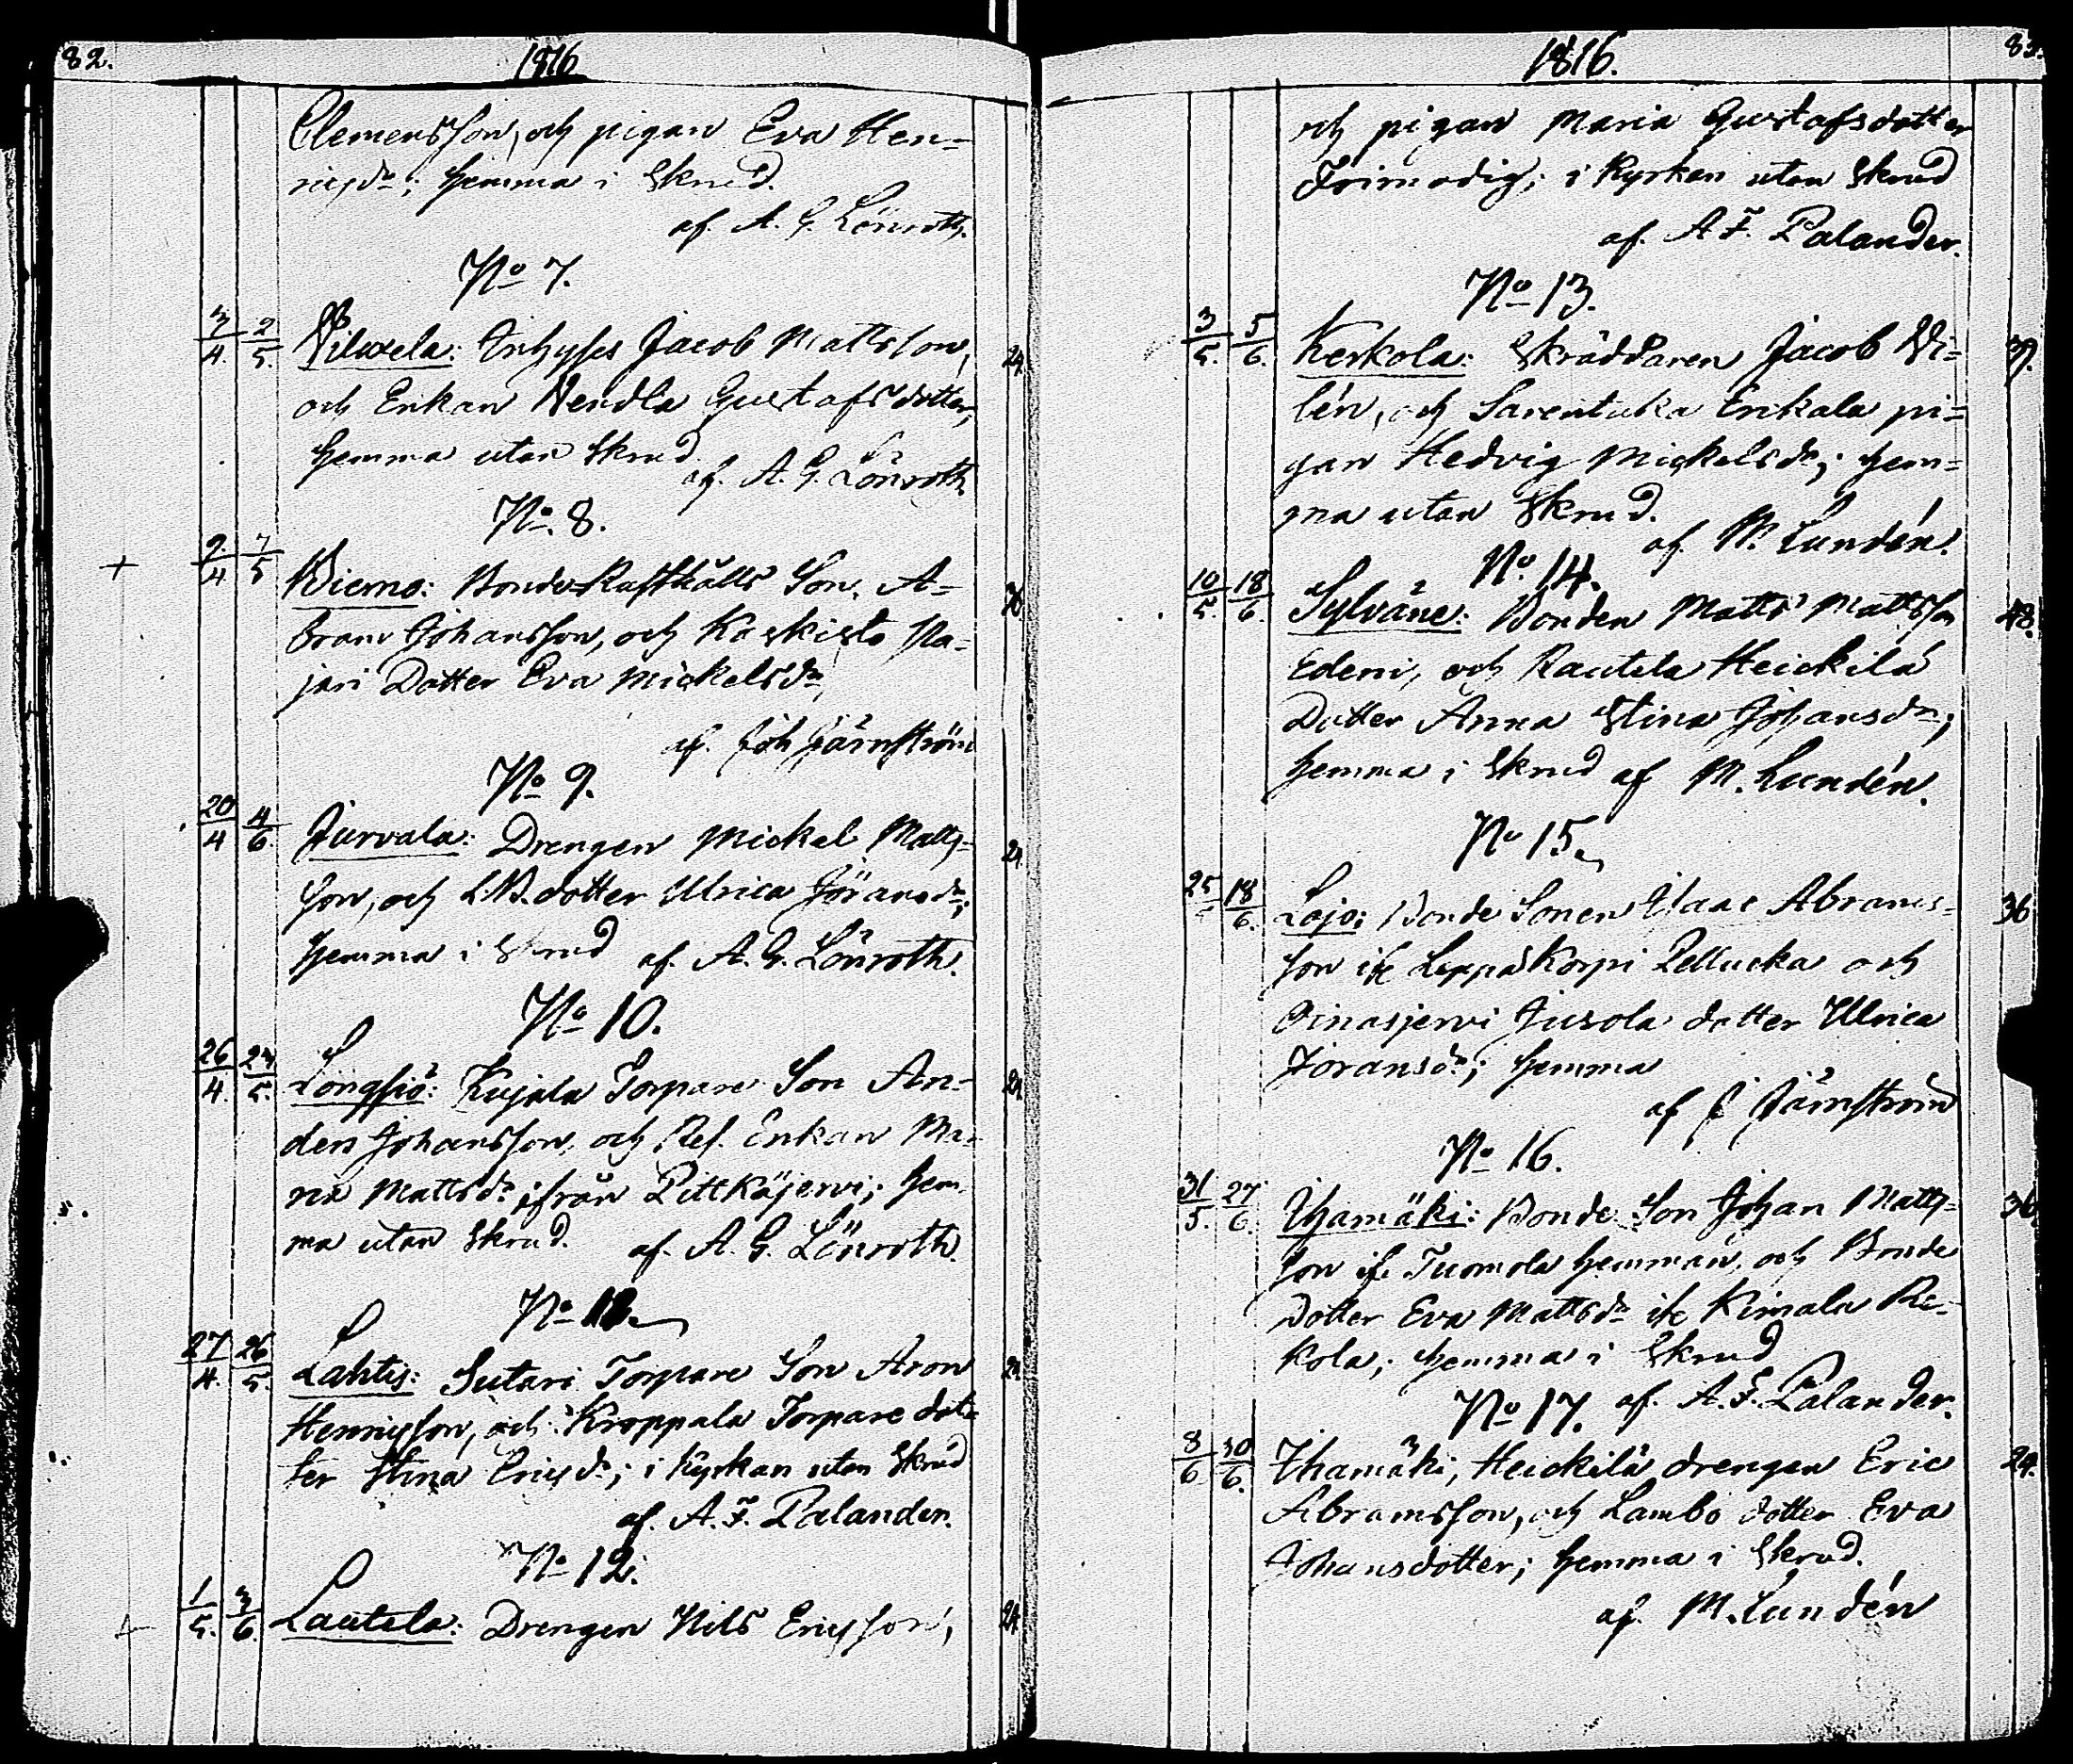 82.
1816
Clemensson, och pigan Eva Hen=
ricsdr; hemma i Skrud.
af. A. G. Lönroth.
No 7.
3/4. 2/5. Wilwela: Enhyses Jacob Mattsson, 24.
och Enkan Wendla Gustafsdotter,
hemma utan Skrud
af. A. G. Lönroth
No. 8.
+ 2/4 7/5 Wiemo: Bonde Son. A=
bram Johansson, och Koskisto Ma=
jari Dotter Eva Mickelsdr
af. Joh Järnström
No 9.
20/4 4/6. Jurvala: Drengen Mickel Matts=
son, och L.B. dotter Ulrica Jöransdr;
hemma i Skrud af. A. G. Lönroth.
No 10.
26/4. 27/5. Långsjö: Kujala Torpare Son An=
ders Johansson, och Ref. Enkan Ma=
ria Mattsdr ifrån Pittkäjervi; hem=
ma utan Skrud. af. A. G. Lönroth.
No 11.
27/4. 26/5. Lahtis: Sutari Torpare Son Aron
Henricsson, och Kroppala Torpare dot=
ter Stina Ericsdr; i Kyrkan utan Skrud
af. A. F. Palander.
No 12.
1/5. 3/6. Lautela: Drengen Nils Ericsson, 24.
1816.
och pigan Maria Gustafsdotter
Frimodig; i Kyrkan utan Skrud
af. A F. Palander.
No 13.
3/5. 5/6. Kerkola: Skräddaren Jacob Wi=
lén, och Sarentaka Erikala pi=
gan Hedvig Mickelsdr; hem=
ma utan Skrud.
af. M. Lundén.
No. 14.
10/5. 18/6. Sylväne: Bonden Matts Mattsson 48.
Edeni, och Rautela Heickilä
Dotter Anna Stina Johansdr;
hemma i Skrud af M. Lundén.
No 15.
25 18/6. Lojo: Bonde Sonen Isaac Abrams= 36
son ifr Leppäkorpi Pellucka och
Oinasjervi Jusola dotter Ulrica
Jöransdr; hemma
af J Järnström
No 16.
31/5. 27/6. Ihamäki: Bonde Son Johan Matts= 36
son ifr Tuomola hemman, och Bonde
Dotter Eva Mattsdr ifr Kimala Re=
kola; hemma i Skrud
af. A. F. Palander.
No 17.
8/6 30/6. Ihamäki, Heickilä drengen Eric 24.
Abramsson, och Lambo dotter Eva
Johansdotter; hemma i Skrud.
af. M. Lundén